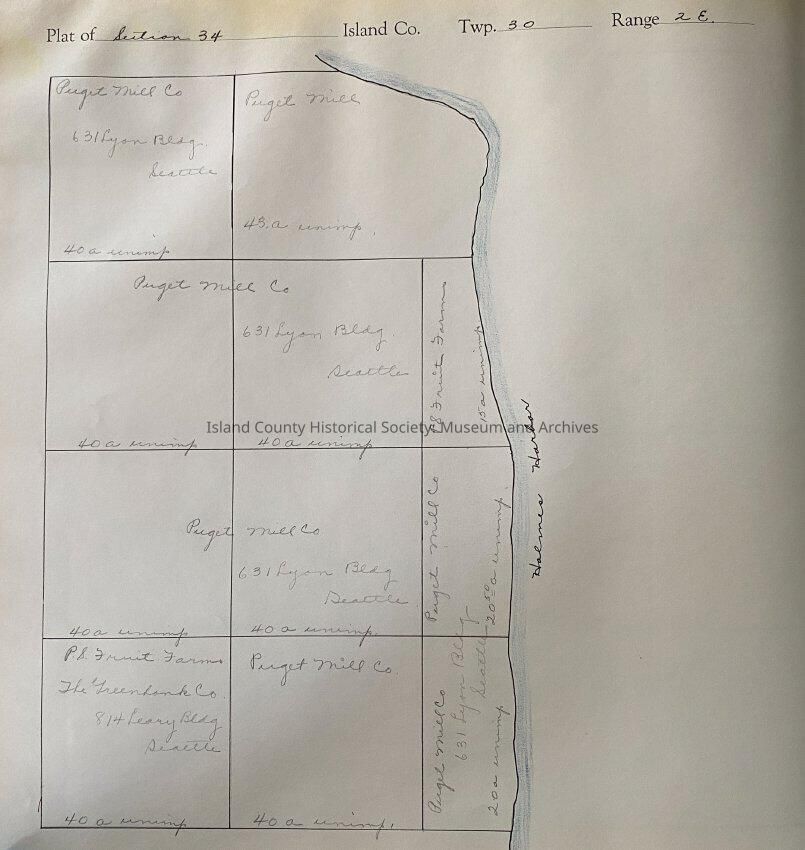 Plat of Section 34 Island Co. Twp. 30 Range 2 E.
Puget Mill Co
631 Lyon Bldg.
Seattle
40 a unimp
Puget Mill
43. a unimp.
Puget Mill Co
631 Lyon Bldg.
Seattle
40 a unimp
40 a unimp
Fruit Farms
15 a unimp
Island County Historical Society Museum and Archives
Holmes Harbor
Puget Mill Co
631 Lyon Bldg
Seattle
40 a unimp
40 a unimp.
Puget Mill Co
20 50 a unimp.
P.S. Fruit Farms
The Greenbank Co.
814 Leary Bldg
Seattle
40 a unimp
Puget Mill Co.
40 a unimp.
Puget Mill Co
631 Lyon Bldg
Seattle
20 a unimp